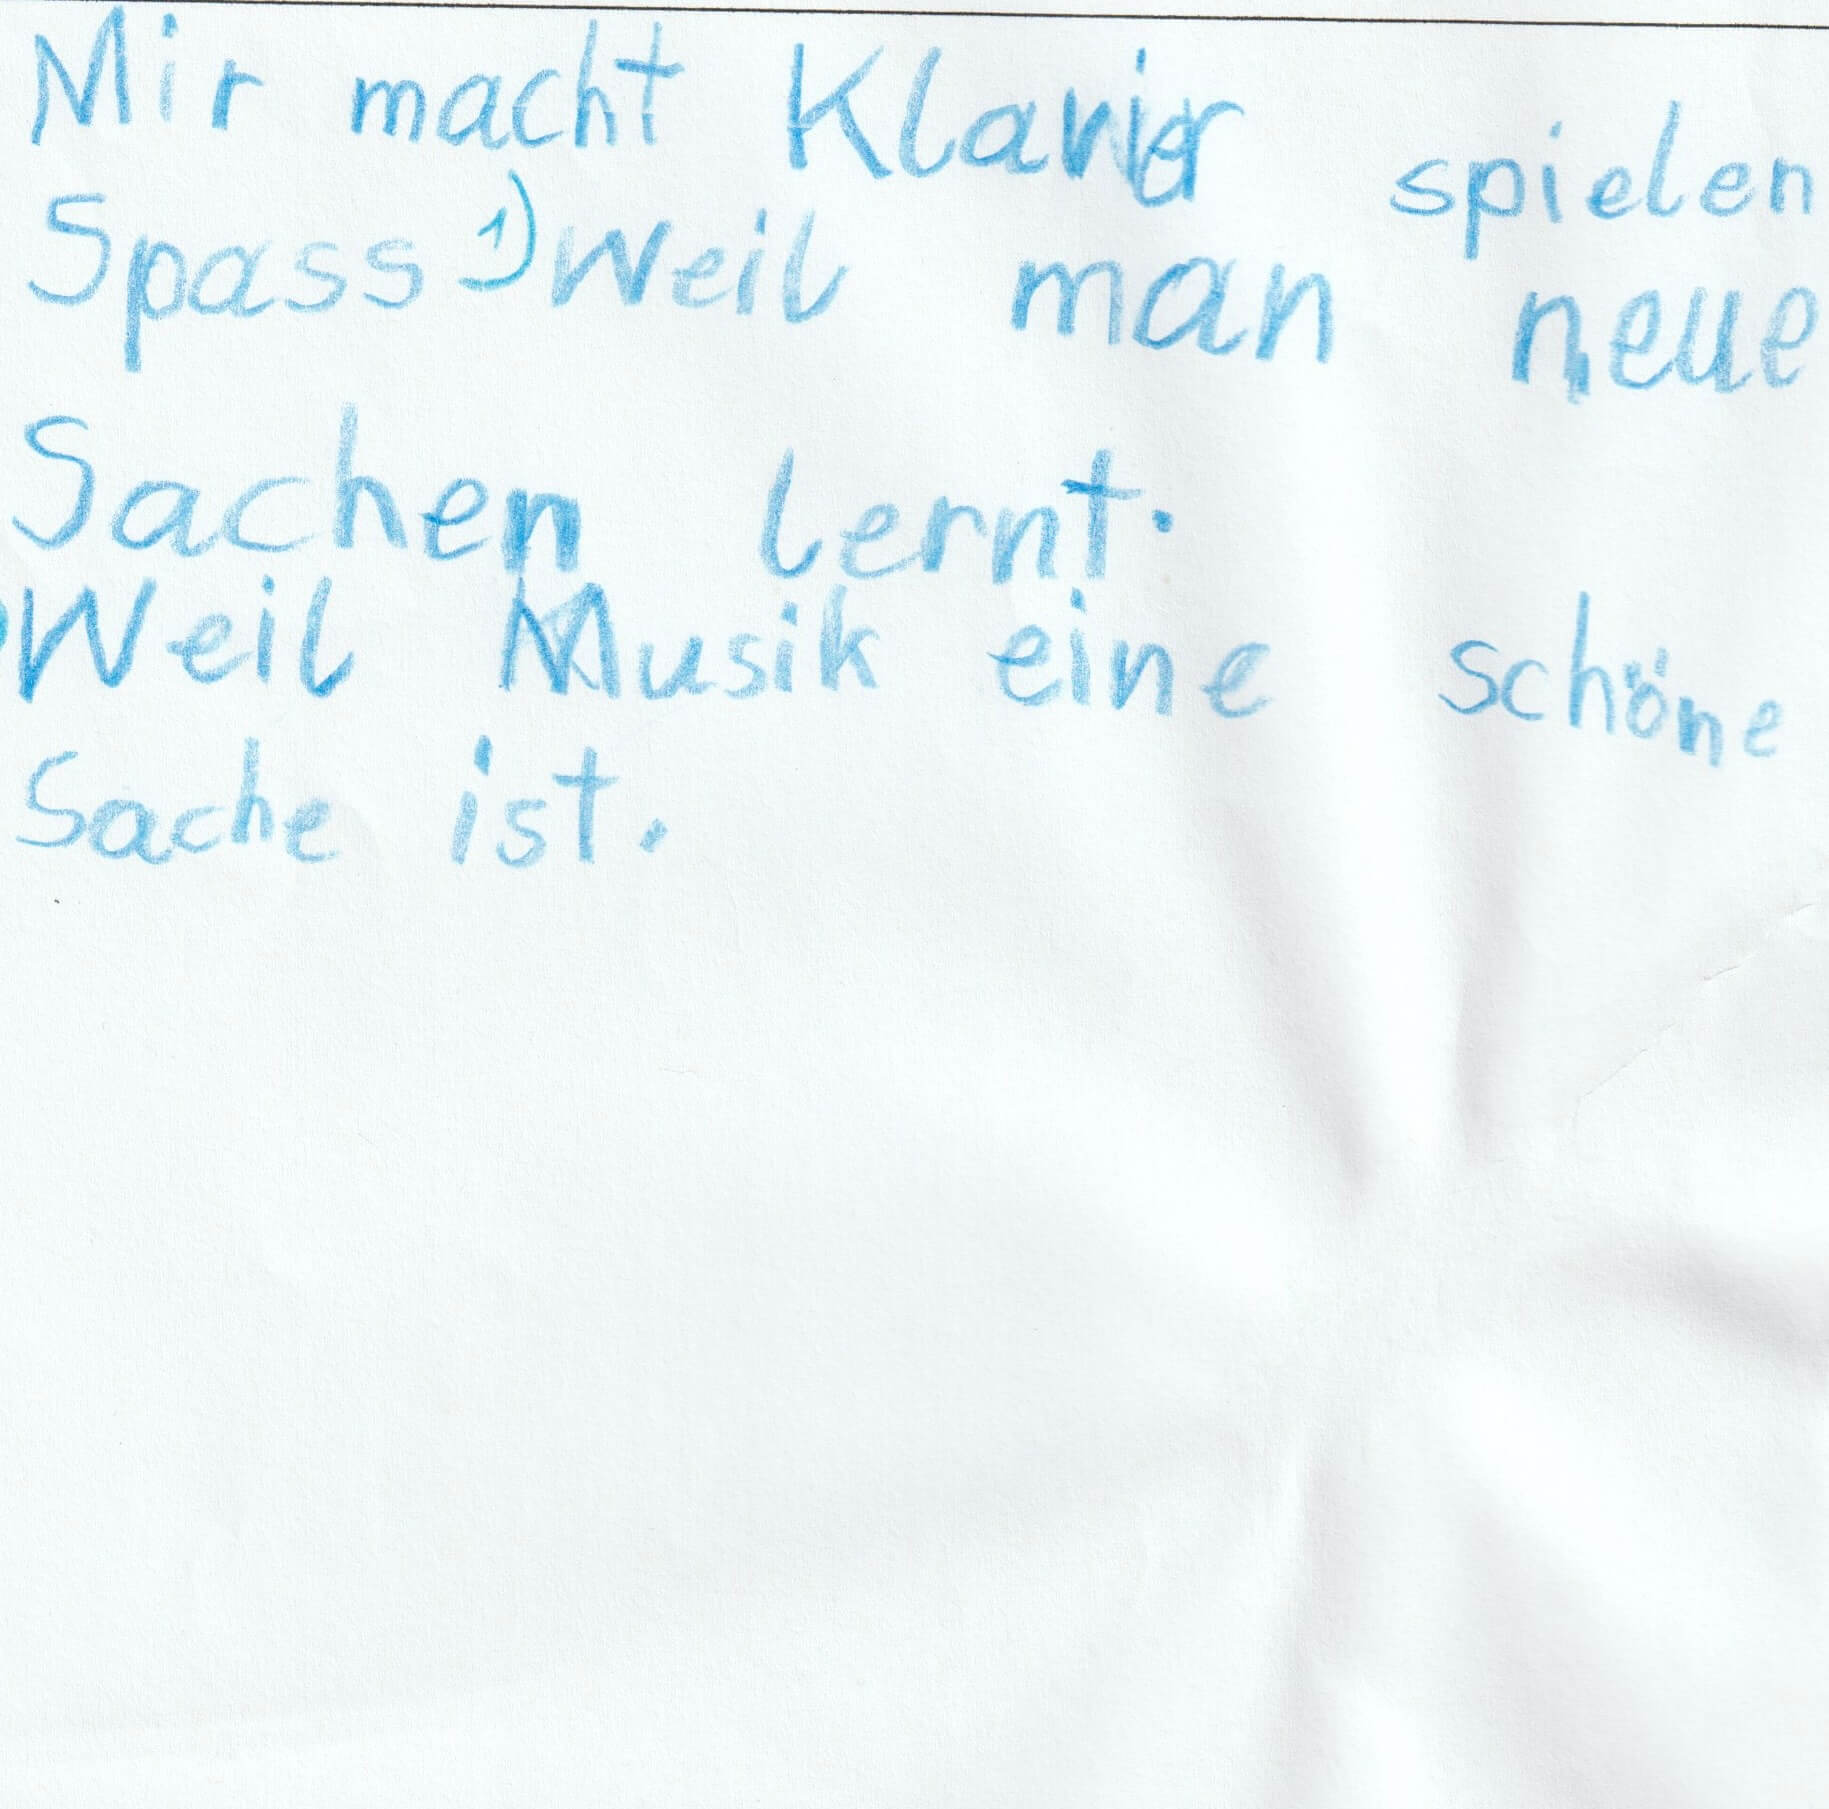 Mir macht Klavier spielen
Spass 1) Weil man neue
Sachen lernt.
Weil Musik eine schöne
Sache ist.